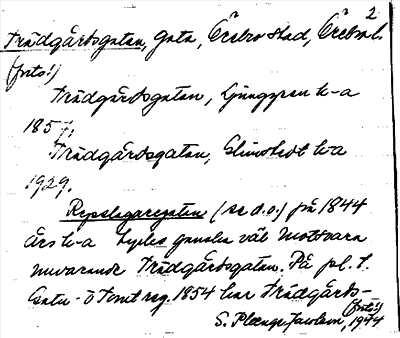 2
Trädgårdsgatan, Gata, Örebro stad, Örebro l.
(forts!)
Trädgårdsgatan, Ljunggren k-a
1857.
Trädgårdsgatan, Elmstedt k-a
1929.
Repslagaregatan (se d.o.) på 1844
års k-a tycks ganska väl motsvara
nuvarande Trädgårdsgatan. På pl. t.
Gatu- o Tomtreg. 1854 har Trädgårds-
(forts!)
S. 1974